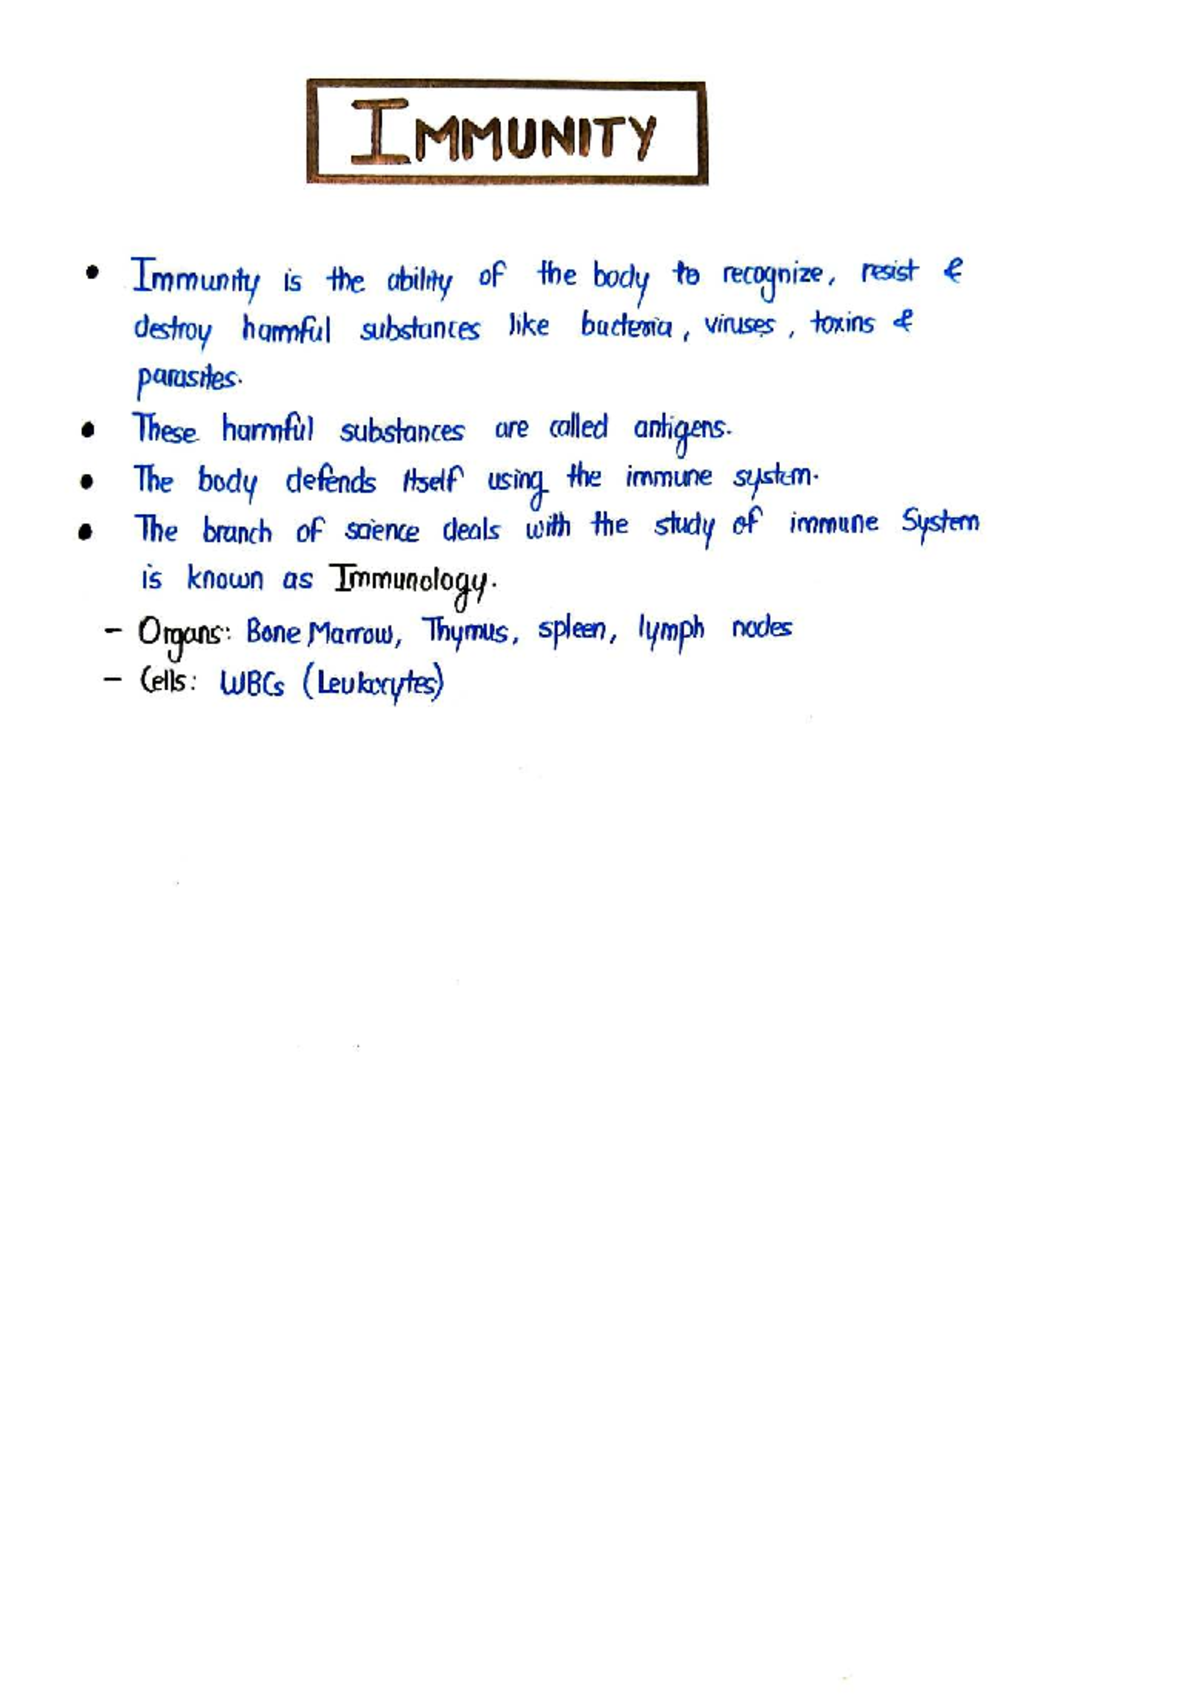 IMMUNITY
• Immunity is the ability of the body to recognize, resist &
destroy harmful substances like bacteria, viruses, toxins &
parasites.
• These harmful substances are called antigens.
• The body defends itself using the immune system.
• The branch of science deals with the study of immune System
is known as Immunology.
- Organs: Bone Marrow, Thymus, spleen, lymph nodes
- Cells: WBCs (Leukocytes)